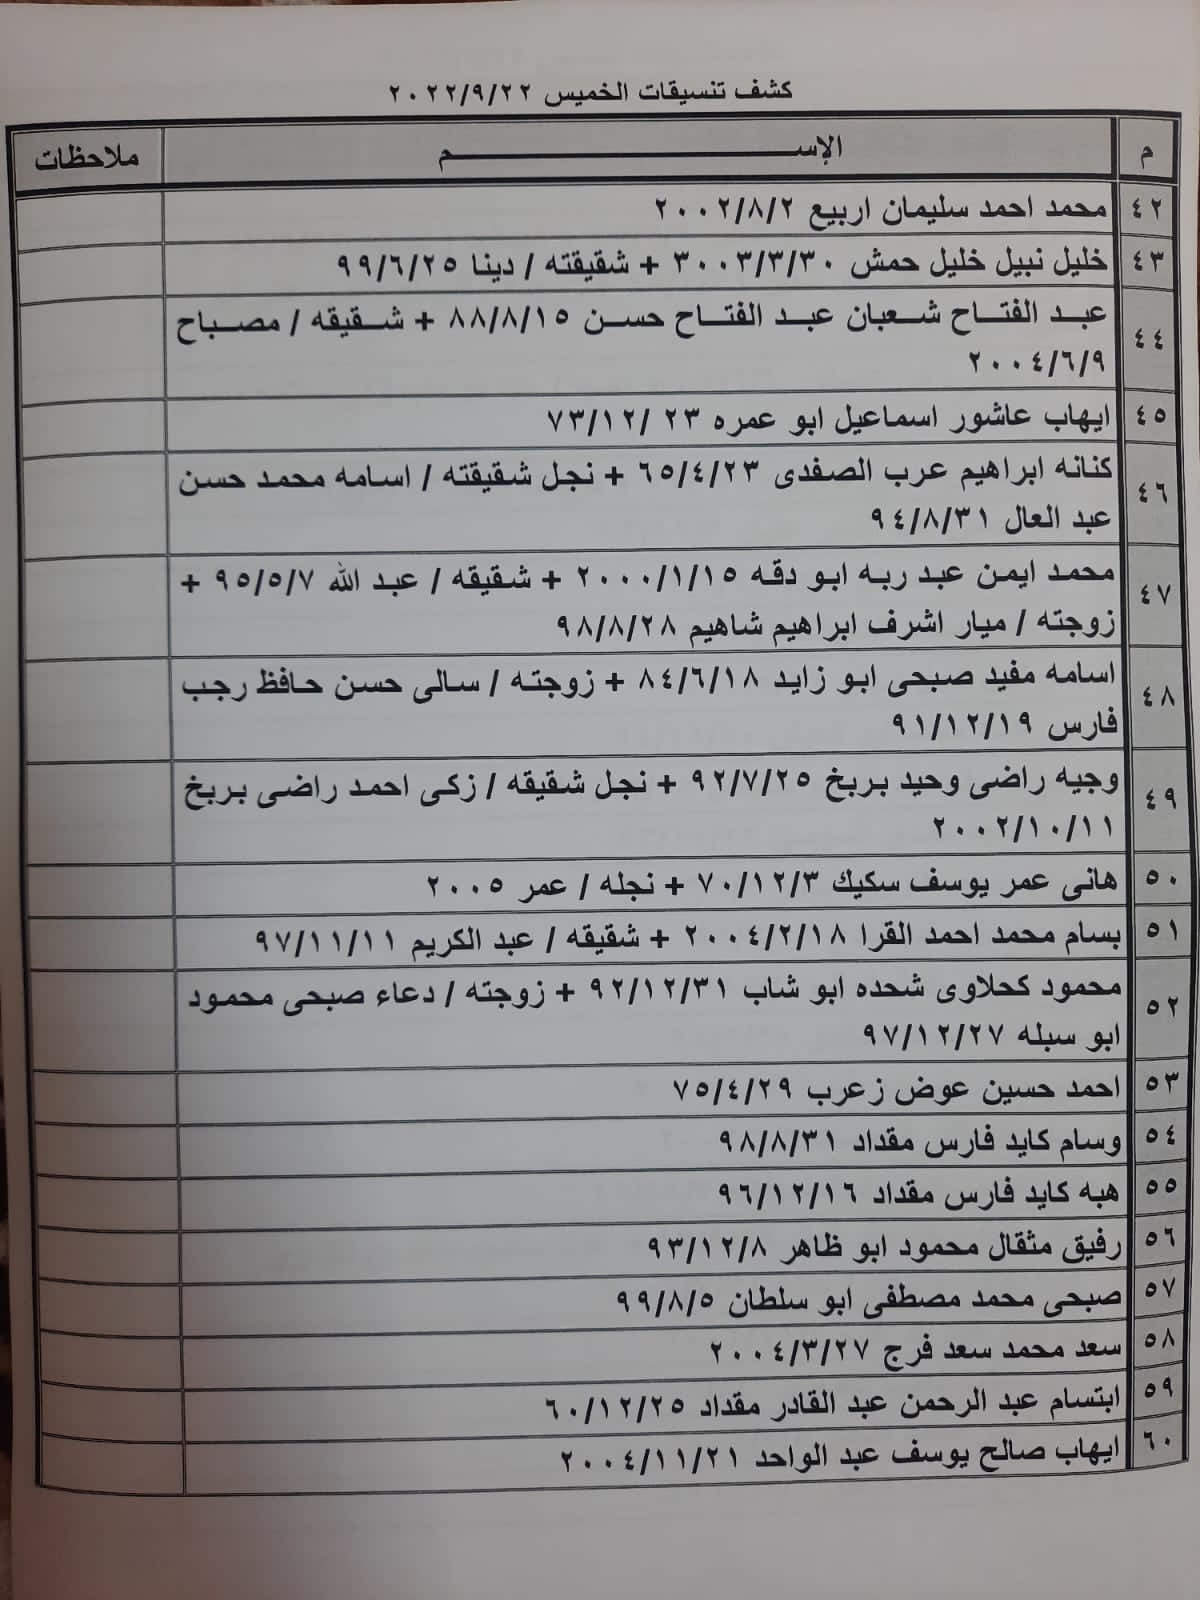 كشف تنسيقات الخميس ٢٠٢٢/٩/٢٢
م الإســـــــــم ملاحظات
٤٢ محمد احمد سليمان اربيع ٢٠٠٢/٨/٢
٤٣ خليل نبيل خليل حمش ٣٠٠٣/٣/٣٠ + شقيقته / دينا ٩٩/٦/٢٥
٤٤ عبد الفتاح شعبان عبد الفتاح حسن ٨٨/٨/١٥ + شقيقه / مصباح
٢٠٠٤/٦/٩
٤٥ ايهاب عاشور اسماعيل ابو عمره ٢٣ /٧٣/١٢
٤٦ كنانه ابراهيم عرب الصفدى ٦٥/٤/٢٣ + نجل شقيقته / اسامه محمد حسن
عبد العال ٩٤/٨/٣١
٤٧ محمد ايمن عبد ربه ابو دقه ٢٠٠٠/١/١٥ + شقيقه / عبد الله ٩٥/٥/٧ +
زوجته / ميار اشرف ابراهيم شاهيم ٩٨/٨/٢٨
٤٨ اسامه مفيد صبحى ابو زايد ٨٤/٦/١٨ + زوجته / سالى حسن حافظ رجب
فارس ٩١/١٢/١٩
٤٩ وجيه راضى وحيد بربخ ٩٢/٧/٢٥ + نجل شقيقه / زكى احمد راضى بربخ
٢٠٠٢/١٠/١١
٥٠ هانى عمر يوسف سكيك ٧٠/١٢/٣ + نجله / عمر ٢٠٠٥
٥١ بسام محمد احمد القرا ٢٠٠٤/٢/١٨ + شقيقه / عبد الكريم ٩٧/١١/١١
٥٢ محمود كحلاوى شحده ابو شاب ٩٢/١٢/٣١ + زوجته / دعاء صبحى محمود
ابو سبله ٩٧/١٢/٢٧
٥٣ احمد حسين عوض زعرب ٧٥/٤/٢٩
٥٤ وسام كايد فارس مقداد ٩٨/٨/٣١
٥٥ هبه كايد فارس مقداد ٩٦/١٢/١٦
٥٦ رفيق مثقال محمود ابو ظاهر ٩٣/١٢/٨
٥٧ صبحى محمد مصطفى ابو سلطان ٩٩/٨/٥
٥٨ سعد محمد سعد فرج ٢٠٠٤/٣/٢٧
٥٩ ابتسام عبد الرحمن عبد القادر مقداد ٦٠/١٢/٢٥
٦٠ ايهاب صالح يوسف عبد الواحد ٢٠٠٤/١١/٢١